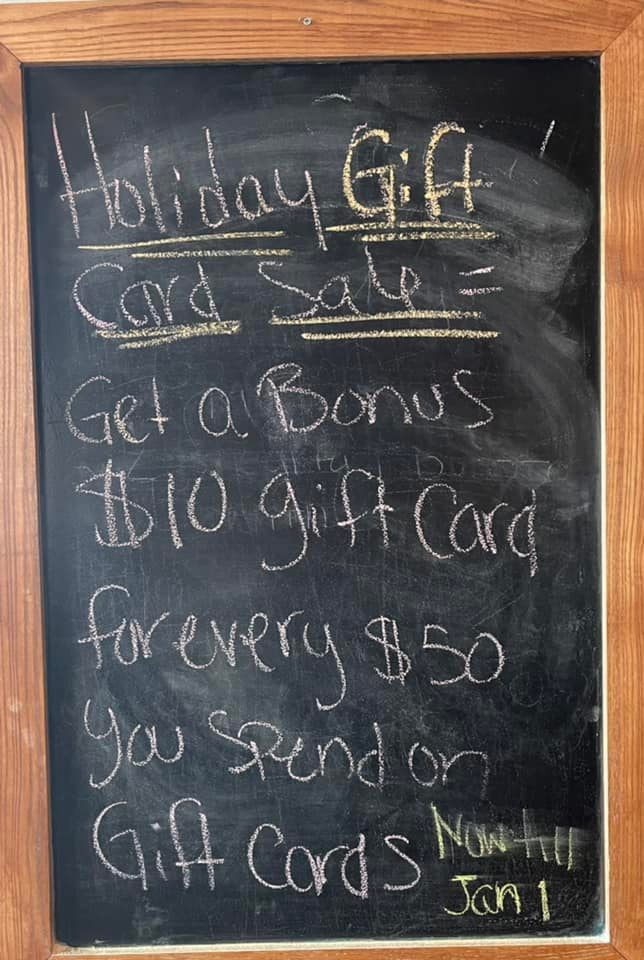 Holiday Gift
Card Sale =
Get a Bonus
$10 gift Card
for every $50
you Spend on
Gift Cards
Now till
Jan 1